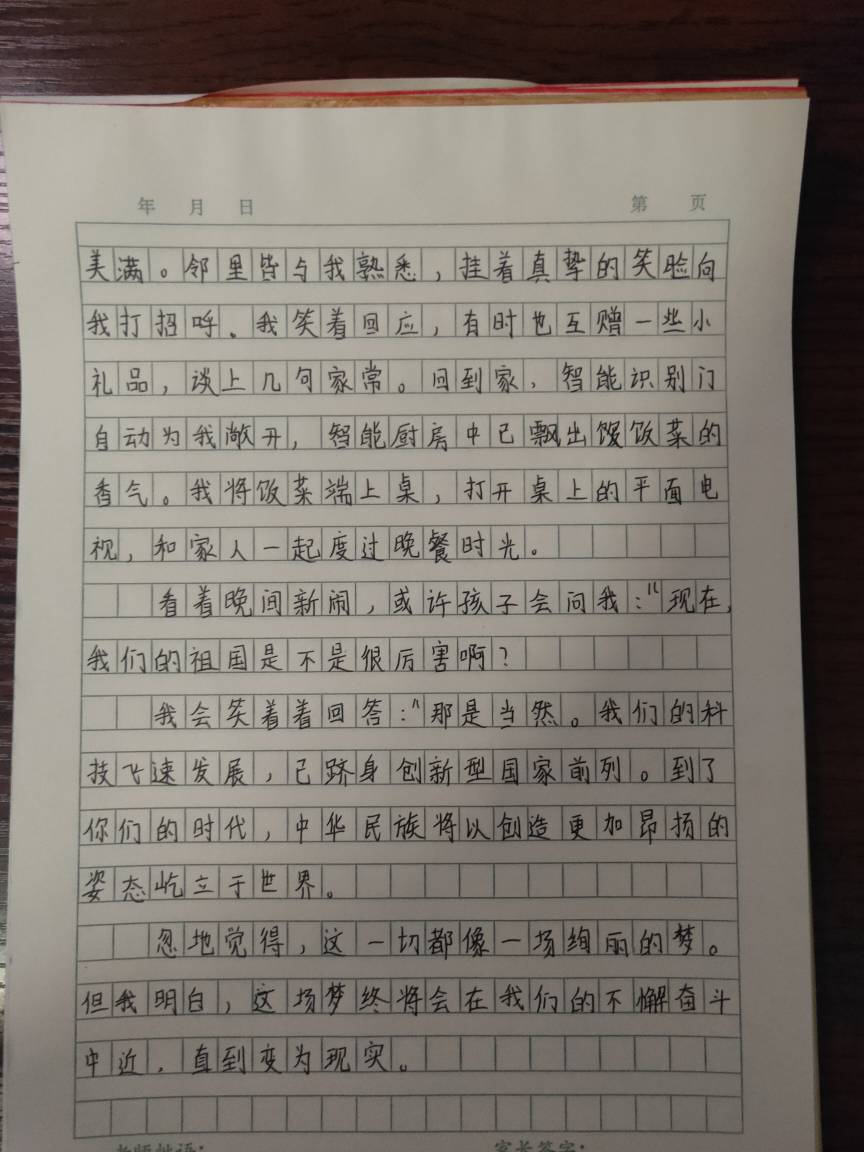 年 月 日 第 页
美满。邻里皆与我熟悉，挂着真挚的笑脸向
我打招呼。我笑着回应，有时也互赠一些小
礼品，谈上几句家常。回到家，智能识别门
自动为我敞开，智能厨房中已飘出馊饭菜的
香气。我将饭菜端上桌，打开桌上的平面电
视，和家人一起度过晚餐时光。
看着晚间新闹，或许孩子会问我：“现在，
我们的祖国是不是很厉害啊？
我会笑着着回答：“那是当然。我们的科
技飞速发展，已跻身创新型国家前列。到了
你们的时代，中华民族将以创造更加昂扬的
姿态屹立于世界。
忽地觉得，这一切都像一场绚丽的梦。
但我明白，这场梦终将会在我们的不懈奋斗
中近，直到变为现实。
老师批语： 家长签字：